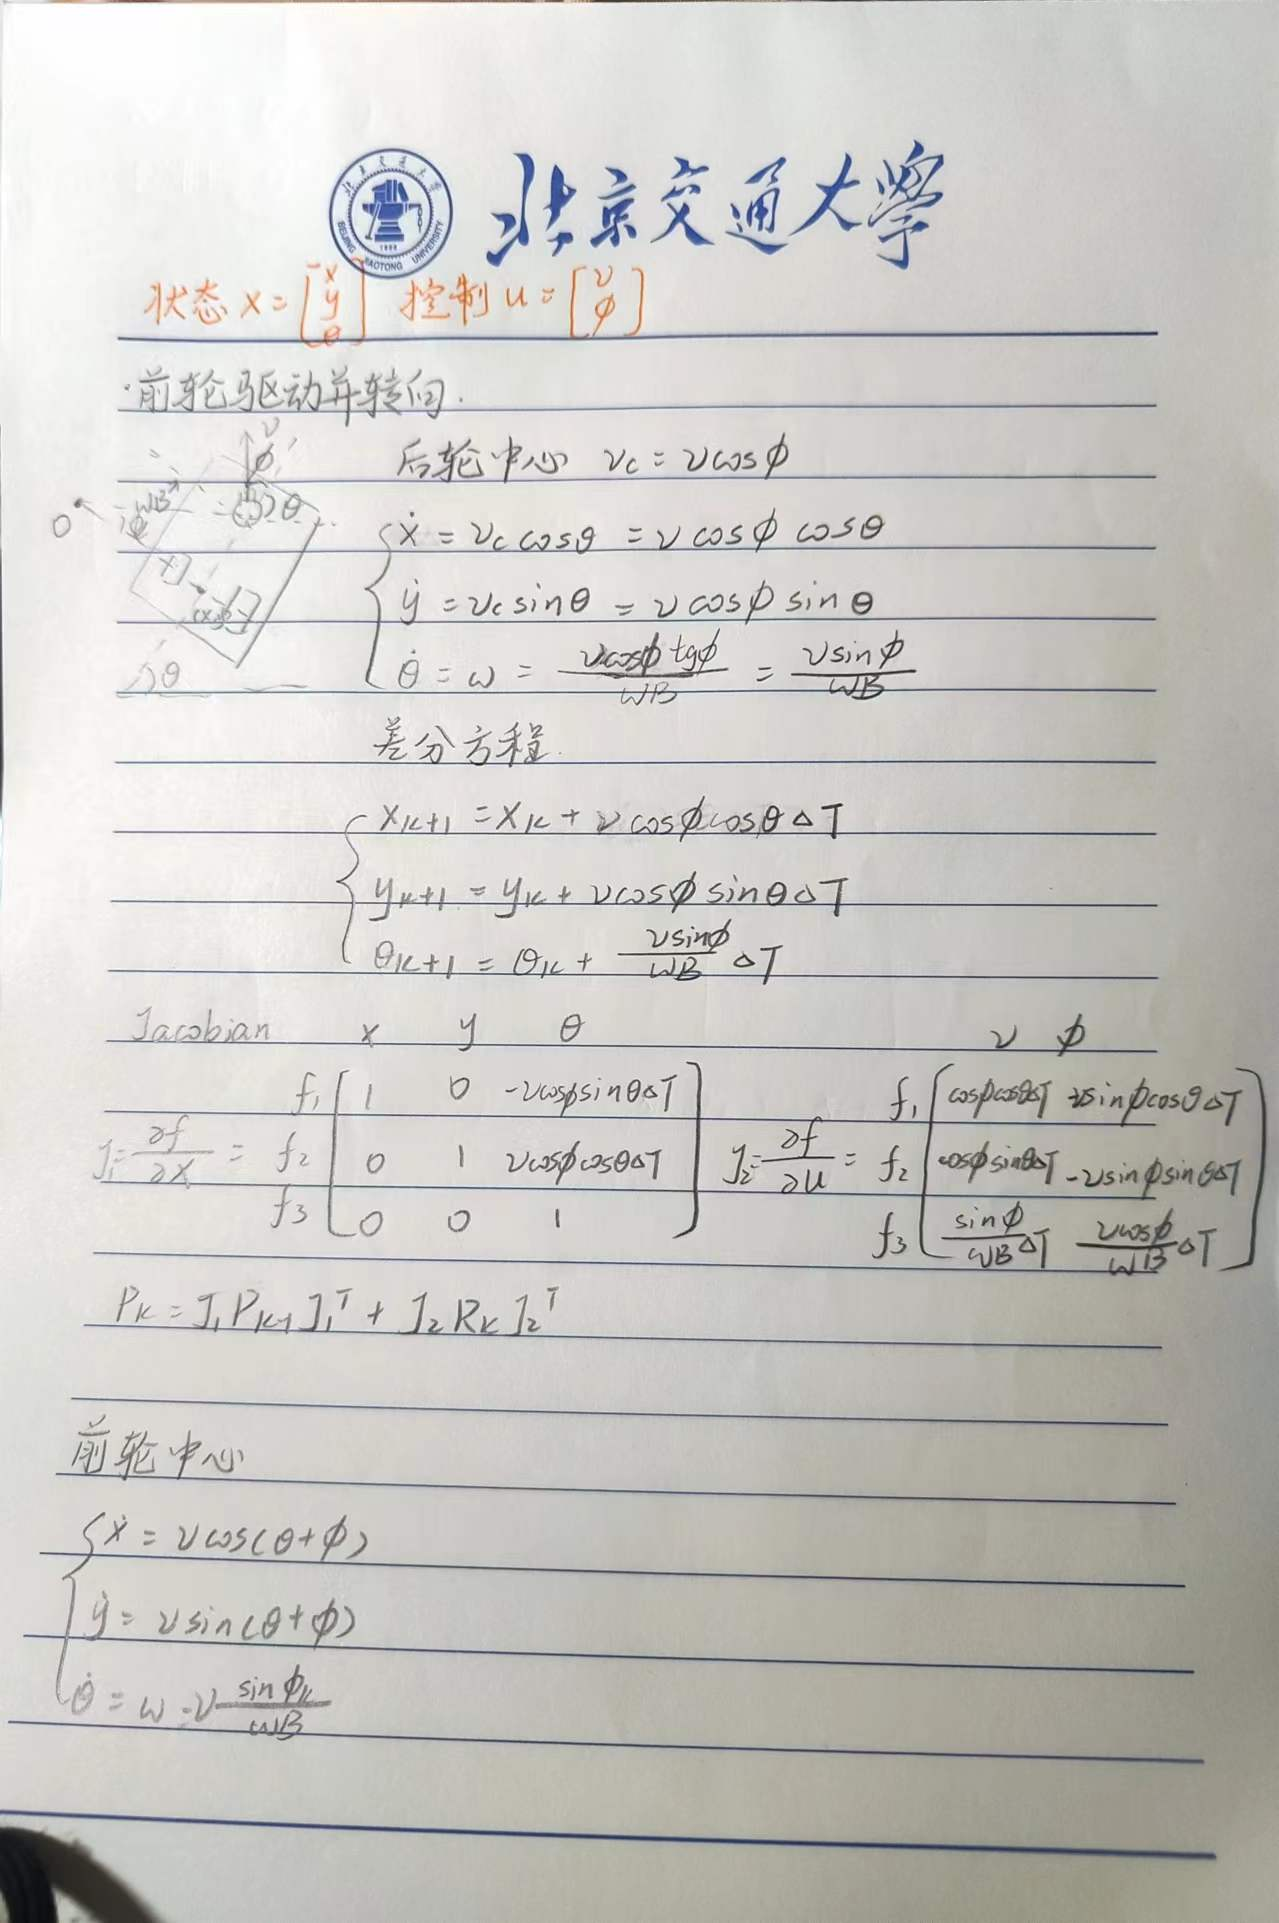 北京交通大学
北京交通大学
BEIJING JIAOTONG UNIVERSITY
1896
状态 X = [x y θ] 控制 u = [v φ]
·前轮驱动并转向.
v
φ
后轮中心 vc = vcosφ
WB
θ
O
φ
ẋ = vc cosθ = v cosφ cosθ
(x,y)
ẏ = vc sinθ = v cosφ sinθ
θ
θ̇ = ω = vcosφ tgφ / WB = vsinφ / WB
差分方程.
xK+1 = xK + v cosφ cosθ ΔT
yK+1 = yK + vcosφ sinθ ΔT
θK+1 = θK + vsinφ / WB ΔT
Jacobian x y θ v φ
f1 1 0 -vcosφsinθΔT f1 cosφcosθΔT -vsinφcosθΔT
J1 = ∂f / ∂X = f2 0 1 vcosφcosθΔT J2 = ∂f / ∂u = f2 cosφsinθΔT -vsinφsinθΔT
f3 0 0 1 f3 sinφ / WB ΔT vcosφ / WB ΔT
PK = J1 PK-1 J1^T + J2 RK J2^T
前轮中心
ẋ = v cos(θ+φ)
ẏ = v sin(θ+φ)
θ̇ = ω = v sinφK / WB